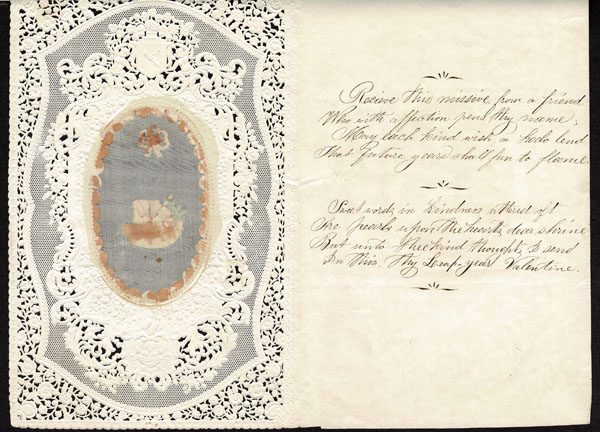 Recieve this missive from a friend
Who with affection pens thy name;
May each kind wish, a halo lend
That future years shall fan to flame.
Sweet words, in kindness uttered oft
Are pearls upon the hearts dear shrine
But unto thee kind thoughts I send
In this, thy Leap-year Valentine.